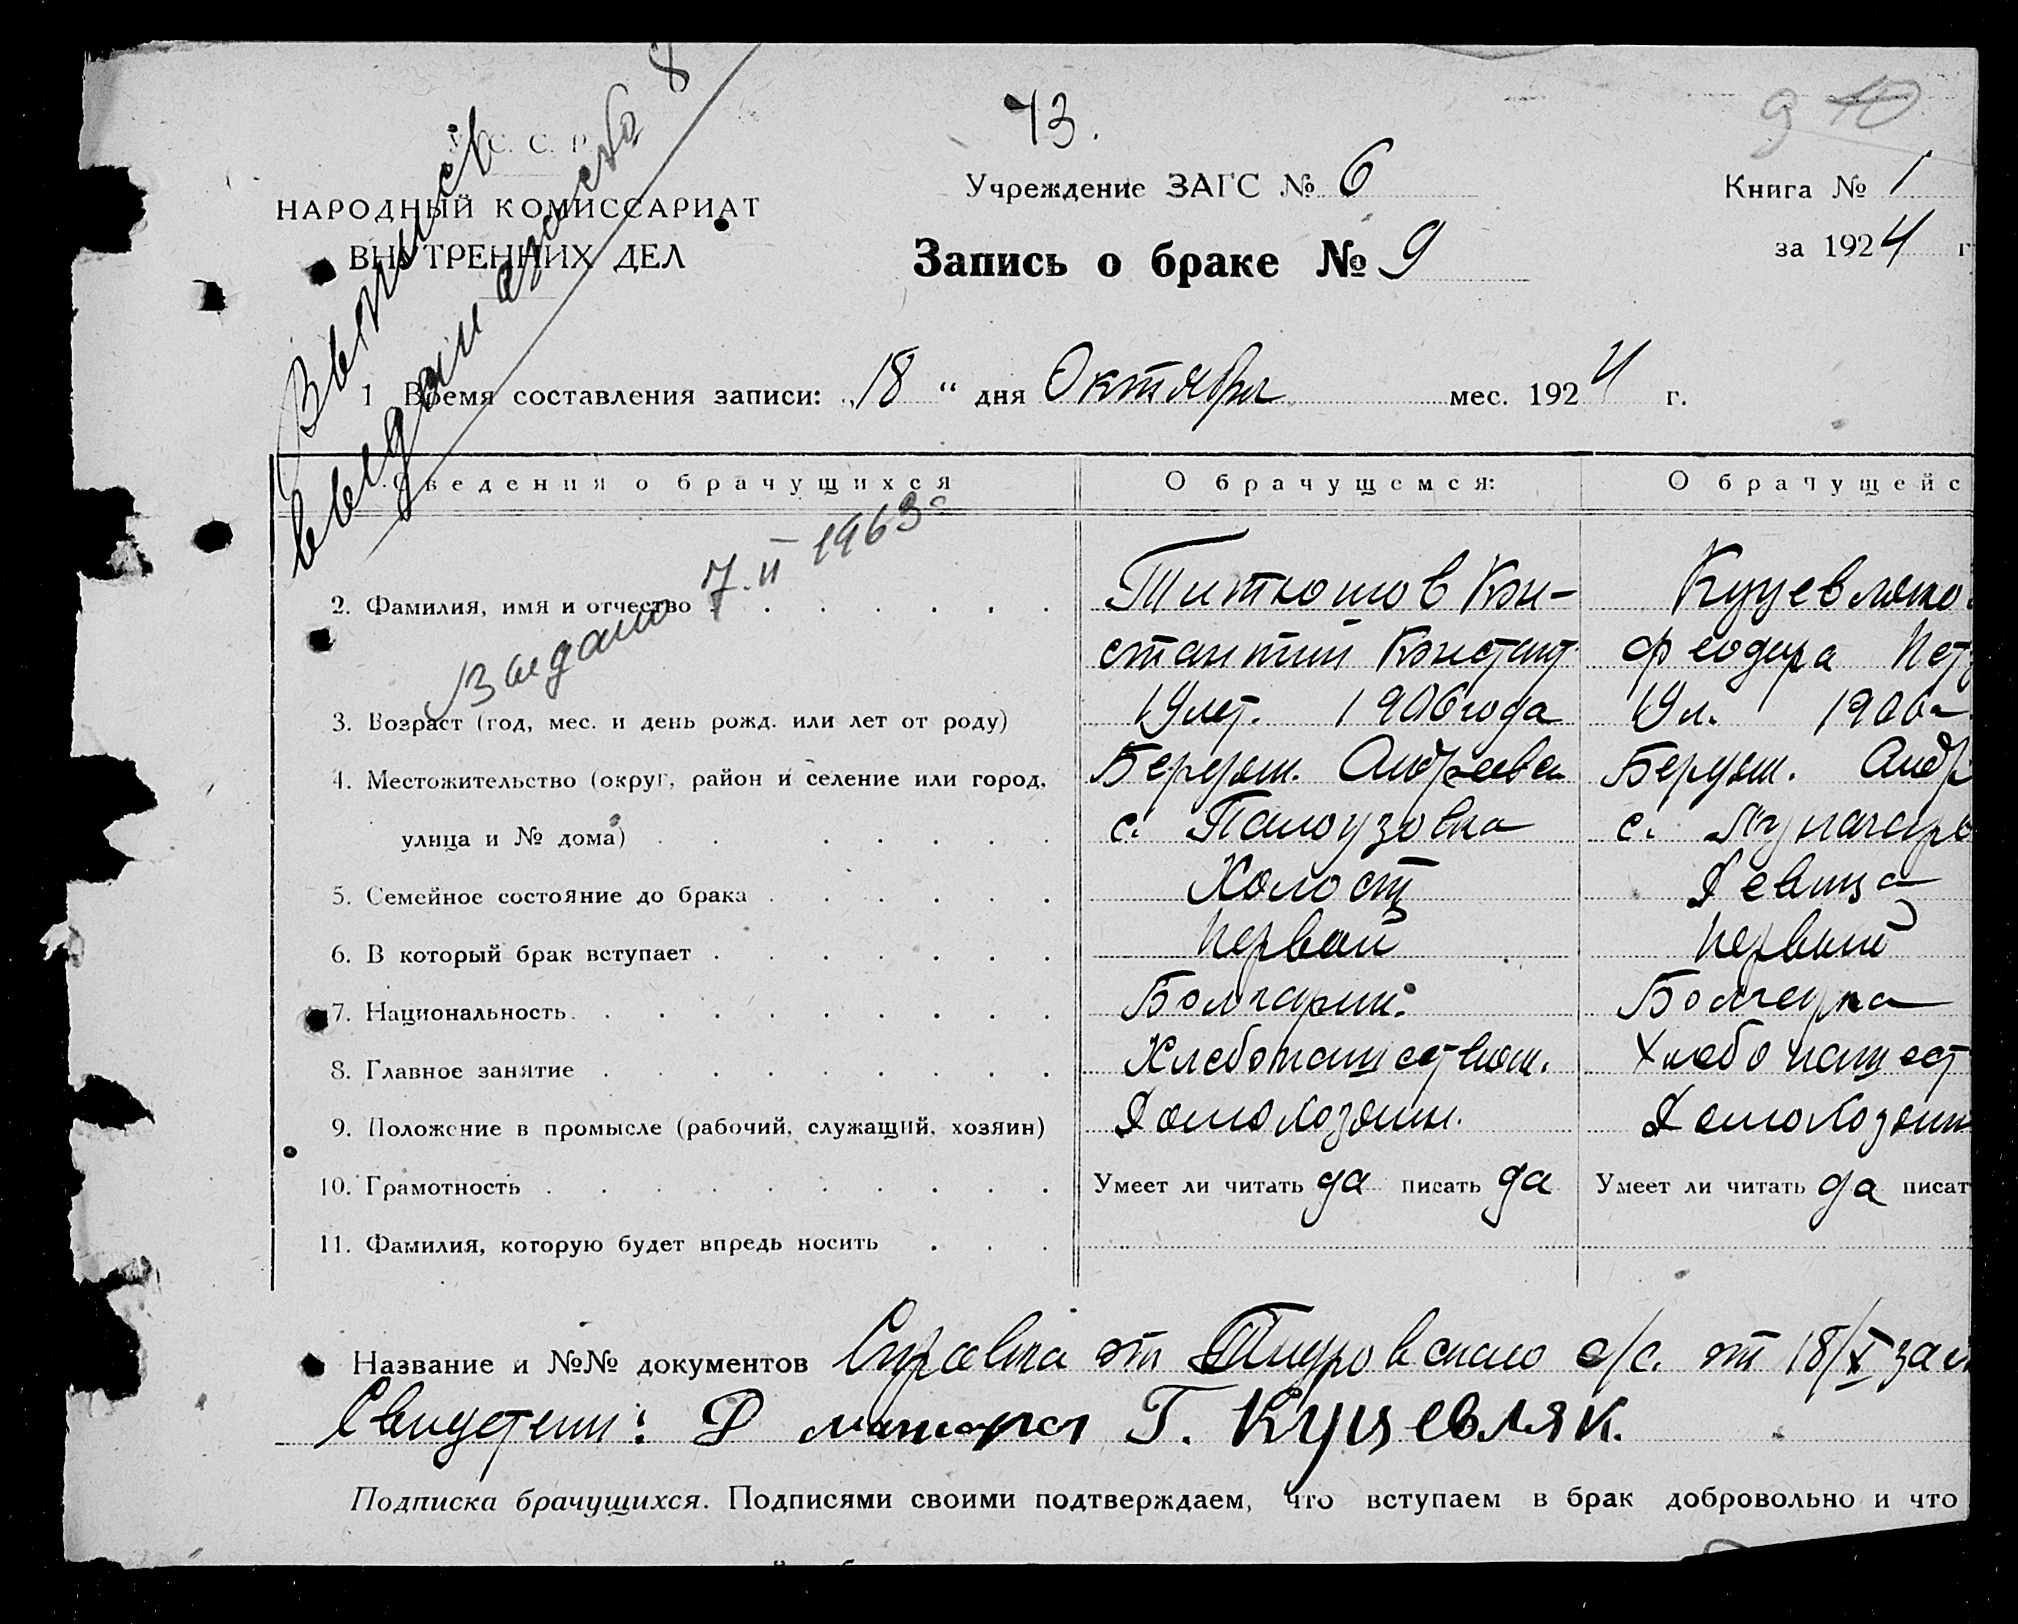 73.
9 10
У. С. С. Р.
НАРОДНЫЙ КОМИССАРИАТ
ВНУТРЕННИХ ДЕЛ
Учреждение ЗАГС № 6
Книга № 1
за 1924 г
Запись о браке № 9
Выпись
выдан
1 Время составления записи: „18“ дня Октября мес. 1924 г.
Сведения о брачущихся О брачущемся: О брачущейс
Выдано 7.II 1963 г
2. Фамилия, имя и отчество Титюшов Кон-
стантин Констант
феодора Пет
3. Возраст (год, мес. и день рожд. или лет от роду) 19 лет. 1906 года 19 л. 1906 г
4. Местожительство (округ, район и селение или город, Бердян. Андреева Бердян. Андр
улица и № дома) с. Палаузовка с. Луначарс
5. Семейное состояние до брака Холост Девица
6. В который брак вступает первый первый
7. Национальность Болгарин. Болгарка
8. Главное занятие Хлебопашество Хлебопашест
9. Положение в промысле (рабочий, служащий, хозяин) Домохозяин. Домохозяин
10. Грамотность Умеет ли читать да писать да Умеет ли читать да писат
11. Фамилия, которую будет впредь носить
Название и №№ документов Справка от с/с. от 18/X за
Свидетели: Г. Куцевляк.
Подписка брачущихся. Подписями своими подтверждаем, что вступаем в брак добровольно и что